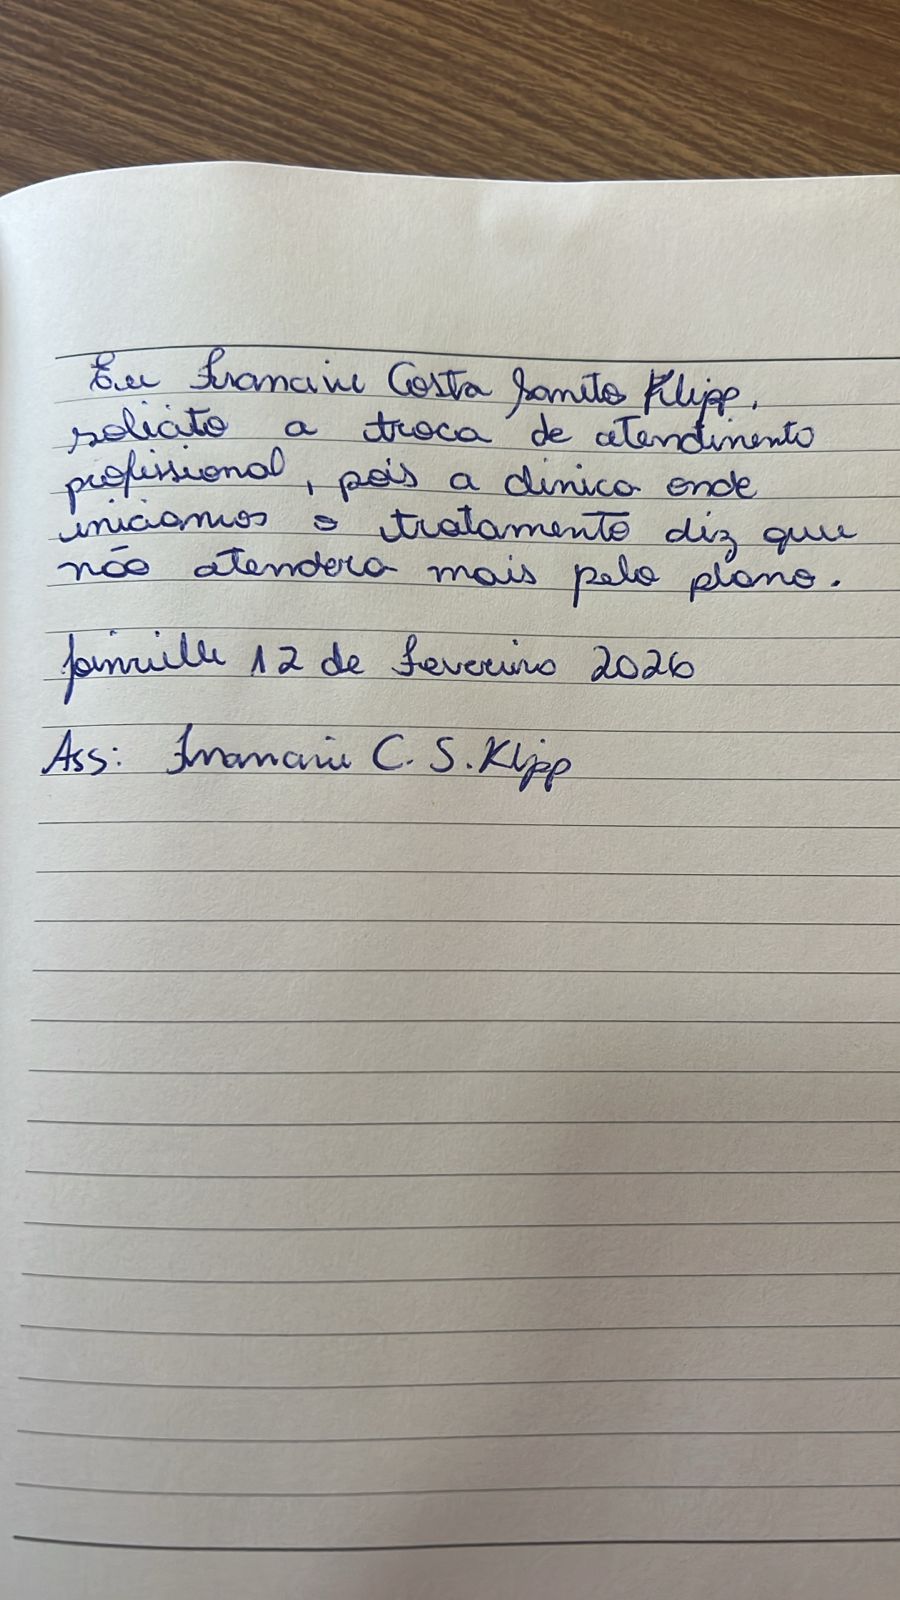 Eu Franciane Costa Janito Klipp,
solicito a troca de atendimento
profissional, pois a clinica onde
iniciamos o tratamento diz que
não atendera mais pelo plano.
Joinville 12 de Fevereiro 2026
Ass: C. S. Klipp